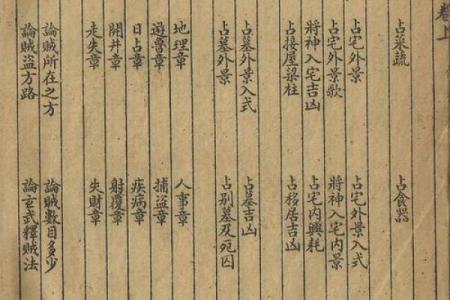 卷上
占菜蔬 占食器
占宅外景 占宅外景入式
占宅外景歌 將神入宅內景
將神入宅吉凶 占宅內興耗
占接屋梁柱 占移居吉凶
占墓外景入式 占墓吉凶
占墓外景 占別墓及死囚
地理章 人事章
遊魯章 捕盜章
日占章 疾病章
開井章 射覆章
走失章 失財章
論賊所在之方 論賊數目多少
論賊盜方路 論玄武釋賊法